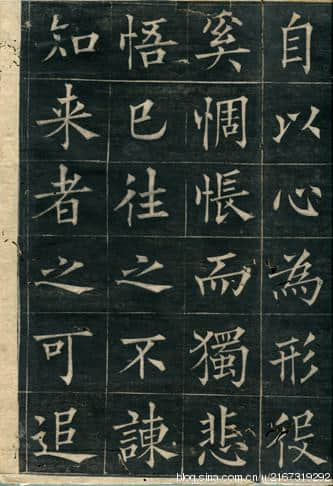 自以心為形役
奚惆悵而獨悲
悟已往之不諫
知来者之可追
blog.sina.com.cn/u/2167319292